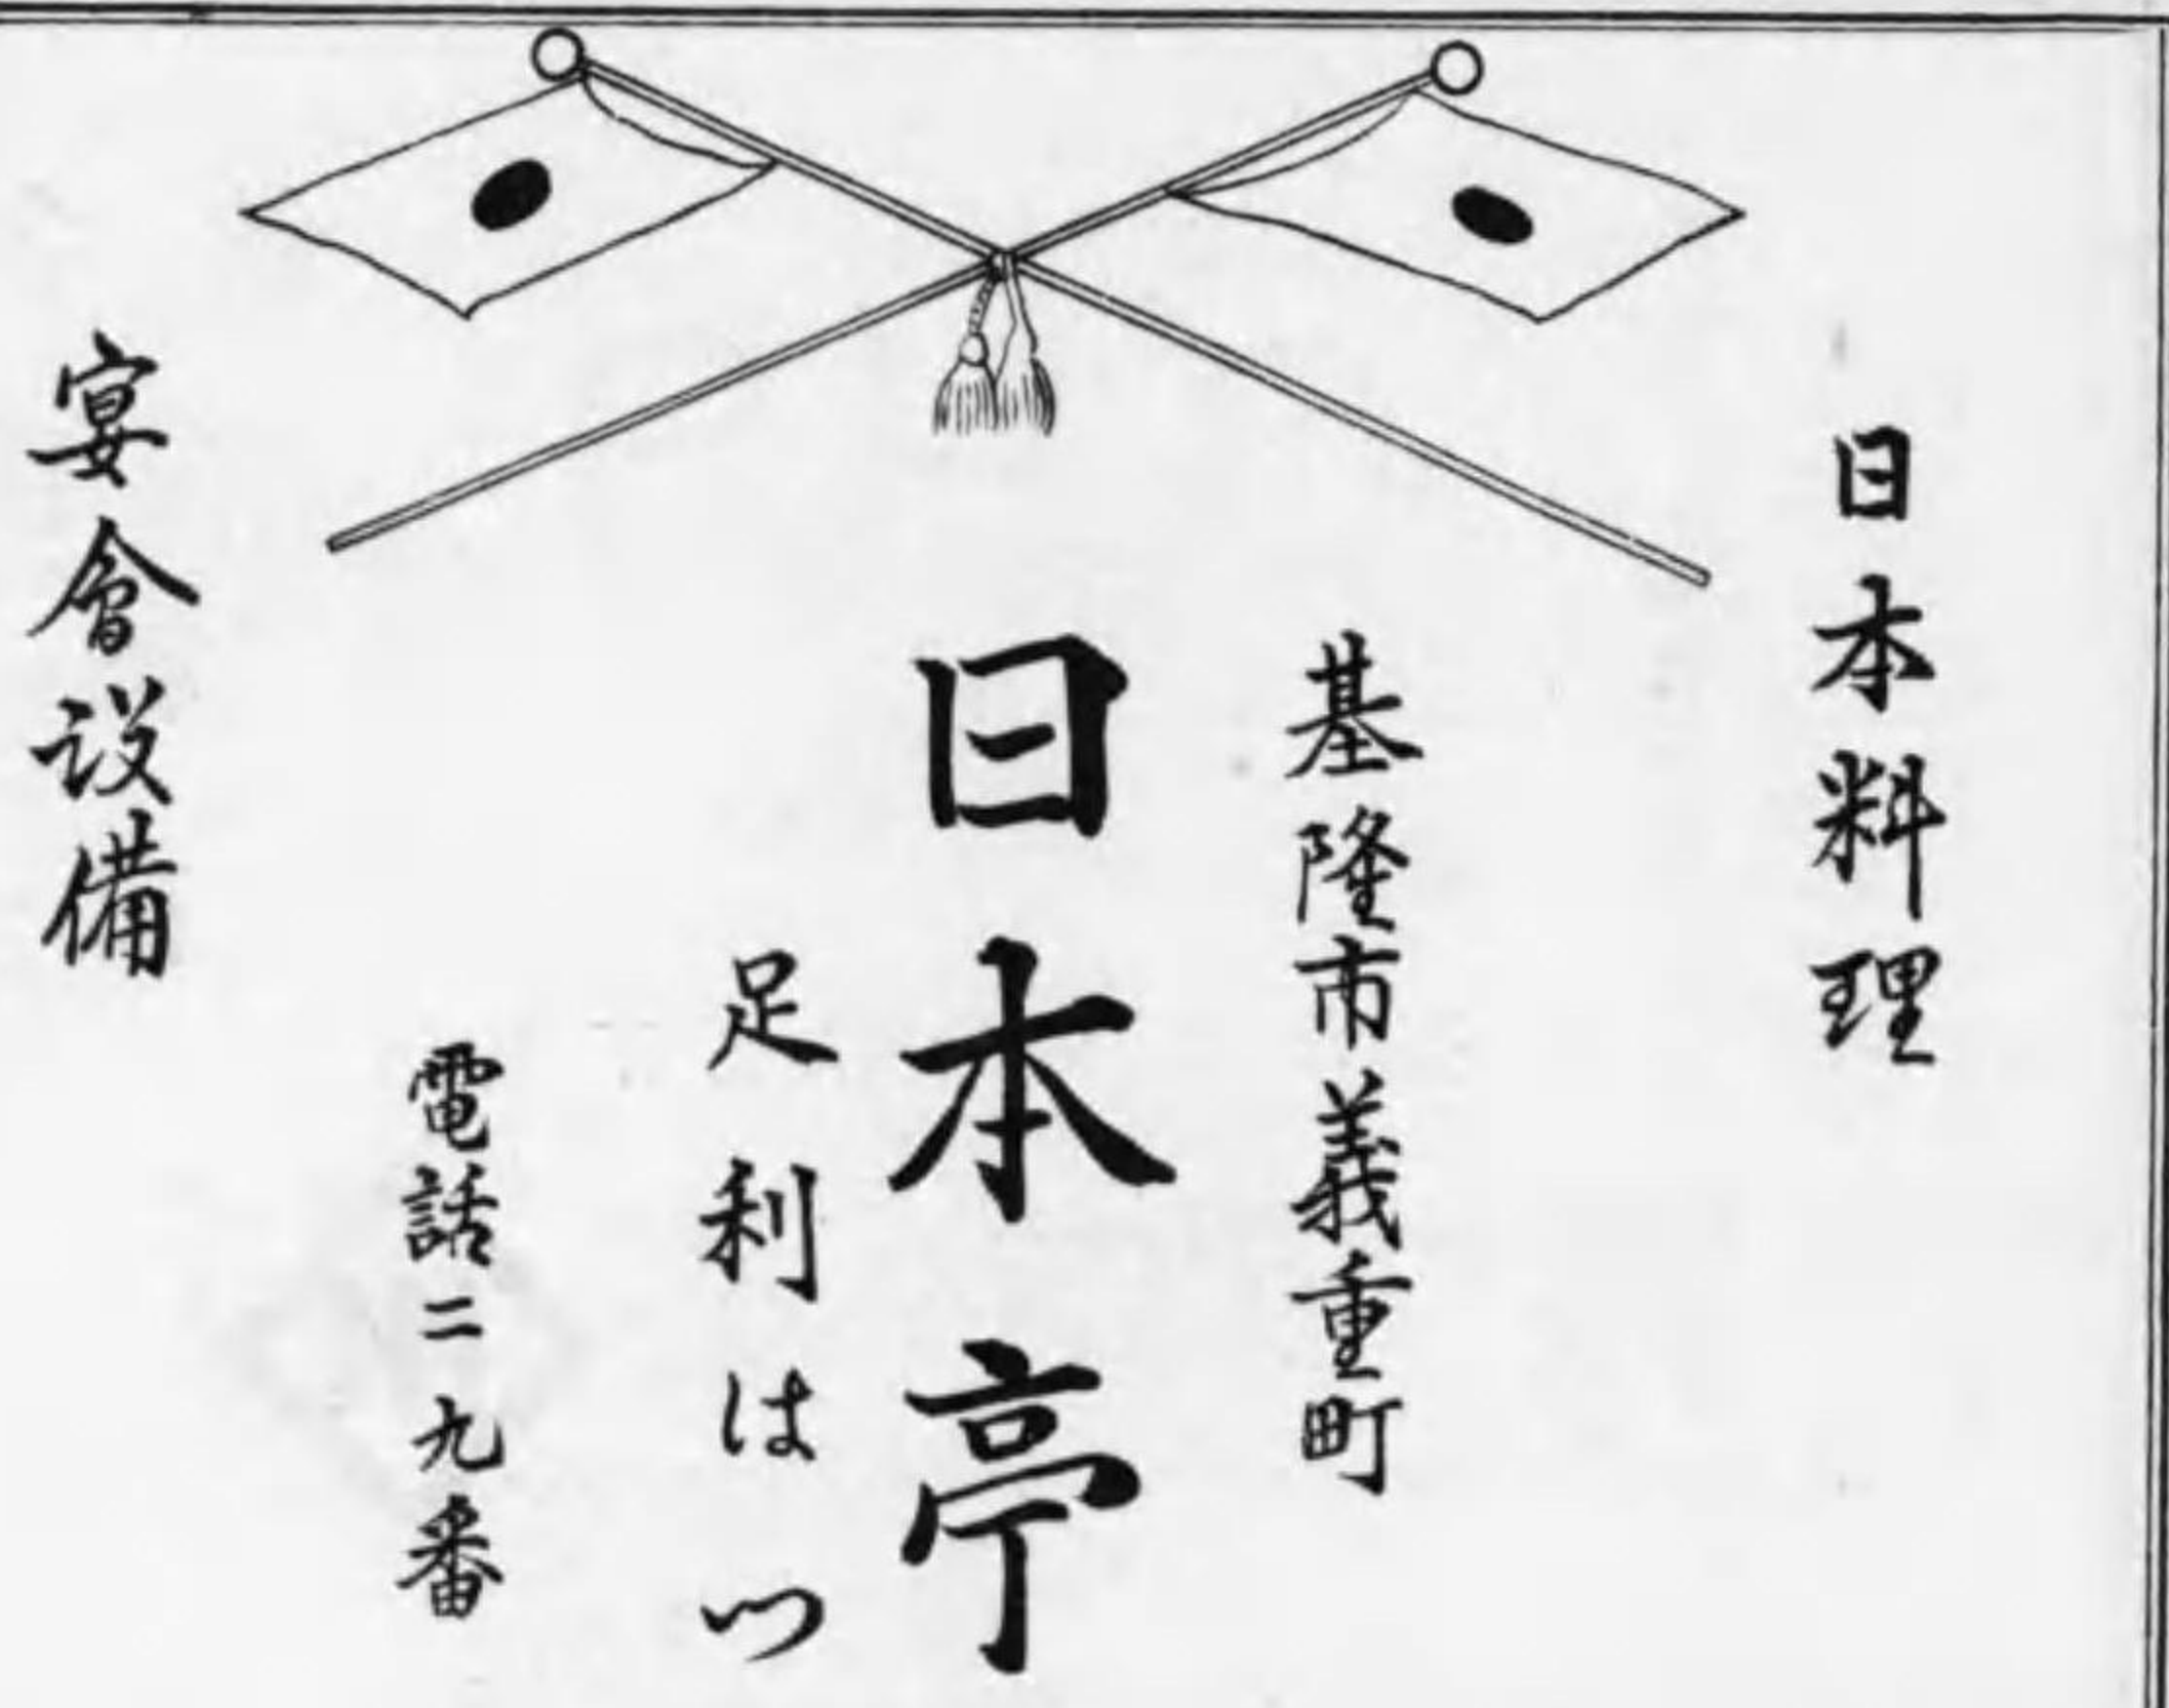 日本料理
基隆市義重町
日本亭
足利はつ
電話二九番
宴會設備